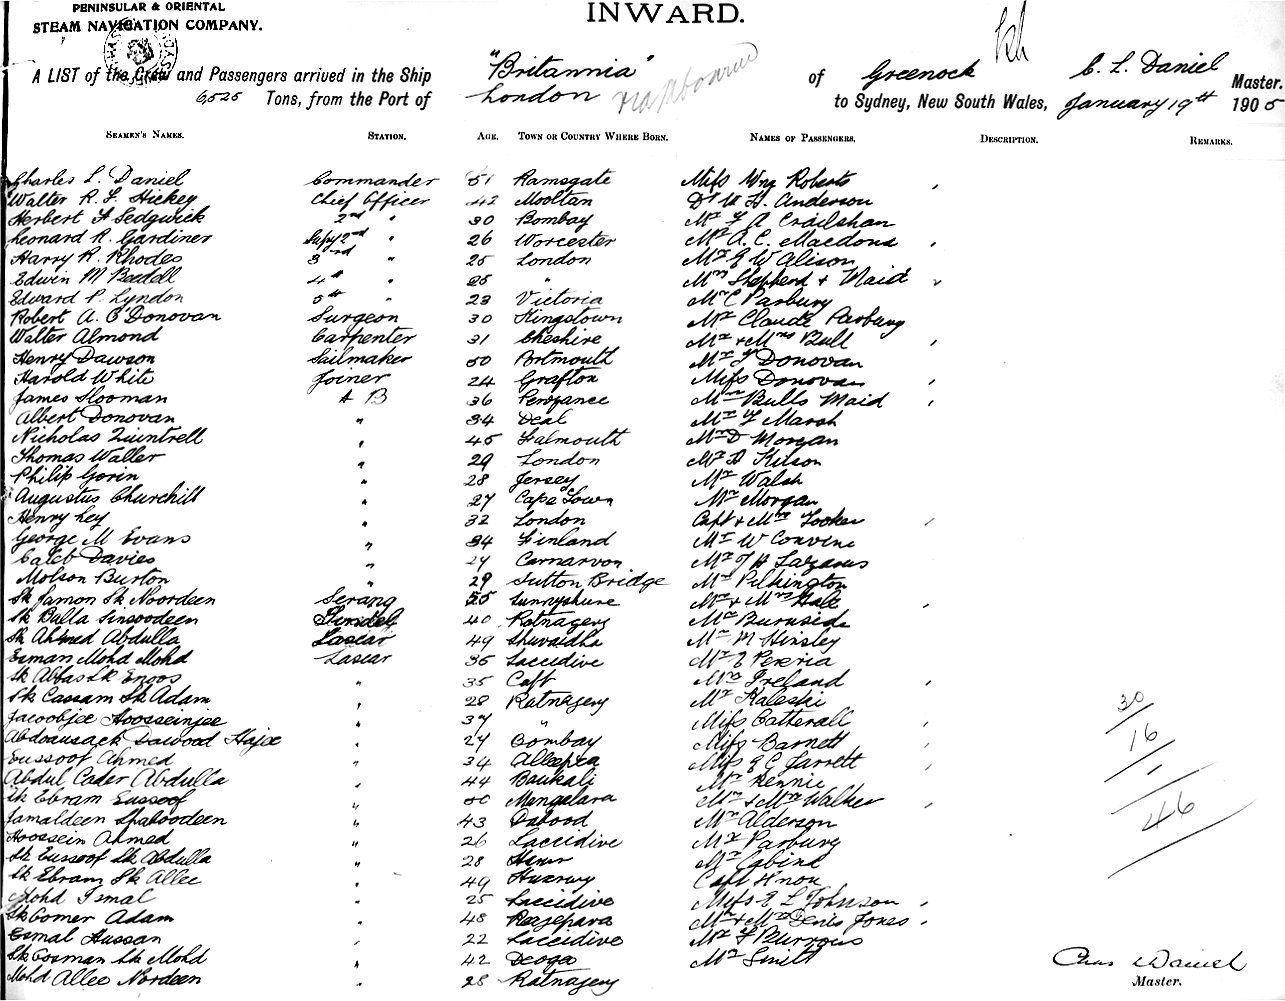 PENINSULAR & ORIENTAL
STEAM NAVIGATION COMPANY.
INWARD.
A LIST of the Crew and Passengers arrived in the Ship "Britannia" of Greenock C. L. Daniel Master.
6525 Tons, from the Port of London to Sydney, New South Wales, January 19th 1905
SEAMEN'S NAMES. STATION. AGE. TOWN OR COUNTRY WHERE BORN. NAMES OF PASSENGERS. DESCRIPTION. REMARKS.
Charles L. Daniel Commander 51 Ramsgate Miss Wng Roberts
Walter R. L. Hickey Chief Officer 42 Mooltan Dr W. H. Anderson
Herbert F Sedgwick 2nd " 30 Bombay Mr F A Crailshan
Leonard R. Gardiner Supy 2nd " 26 Worcester Mr A. C. Macdona
Harry R. Rhodes 3rd " 25 London Mr E W Alison
Edwin M Beddell 4th " 25 " Mrs Shepherd + Maid
Edward P. Lyndon 5th " 23 Victoria Mr C Parbury
Robert A. O'Donovan Surgeon 30 Kingstown Mr Claude Parbury
Walter Almond Carpenter 31 Cheshire Mr + Mrs Bull
Henry Dawson Sailmaker 50 Portmouth Mr J Donovan
Harold White Joiner 24 Grafton Miss Donovan
James Slooman A B 36 Penzance Mrs Bulls Maid
Albert Donovan " 34 Deal Mr F Marsh
Nicholas Quintrell " 45 Falmouth Mr D Morgan
Thomas Waller " 29 London Mr D Kilson
Philip Gorin " 28 Jersey Mr Walsh
Augustus Churchill " 27 Cape Town Mr Morgan
Henry Ley " 32 London Capt + Mrs Tooker
George M Evans " 34 Finland Mr W Convine
Caleb Davies " 24 Carnarvon Mr J H Lazarus
Molson Burton " 29 Sutton Bridge Mr Pilkington
Sk Jamon Sk Noordeen Serang 55 Mr + Mrs Hale
Sk Bulla Sinsoodeen 40 Ratnagery Mr Burnside
Sk Ahmed Abdulla Lascar 49 Mr M Hinsley
Esman Mohd Mohd Lascar 35 Laccidive Mr E Pereria
Sk Abbas Sk Enoos " 35 Mrs Ireland
Sk Cassam Sk Adam " 28 Ratnagery Mr Kaleski
Jacoobjee Hoosseinjee " 37 " Miss Catterall
Abdoausack Dawood Hajee " 24 Bombay Miss Barnett
Eussoof Ahmed " 34 Alleppea Miss E C Jarrett
Abdul Cader Abdulla " 44 Baukali Mr Rennie
Sk Ebram Eussoof " 50 Mangelara Mr + Mrs Walker
Jamaldeen Shaboodeen " 43 Dabood Mr Alderson
Hoossein Ahmed " 26 Laccidive Mr Parbury
Sk Eussoof Sk Abdulla " 28
Sk Ebram Sk Allee " 49 Capt
Mohd Ismal " 25 Laccidive Miss E L Johnson
Sk Gomer Adam " 48 Mr + Mrs Denis Jones
Esmal Hussan " 22 Laccidive Mr F Burrows
Sk Oosman Sk Mohd " 42 Deoga Mr Smith
Mohd Allee Nordeen " 28 Ratnagery
30
16
1
46
Chas L Daniel
Master.